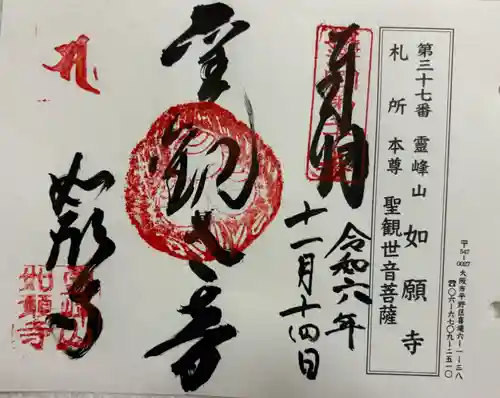 第三十七番 靈峰山 如願寺
札所本尊 聖観世音菩薩
〒547-0027 大阪市平野区喜連六-一-三八
☎〇六-六七〇九-二五一〇
奉拝
令和六年
十一月十四日
聖観世音
如願寺
如願寺